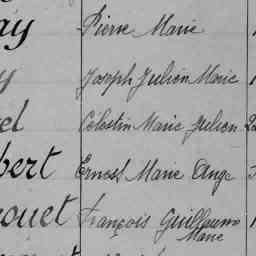 ay Pierre Marie
y Joseph Julien Marie
el Célestin Marie Julien 22
bert Ernest Marie Ange
ouet François Guillaume
Marie